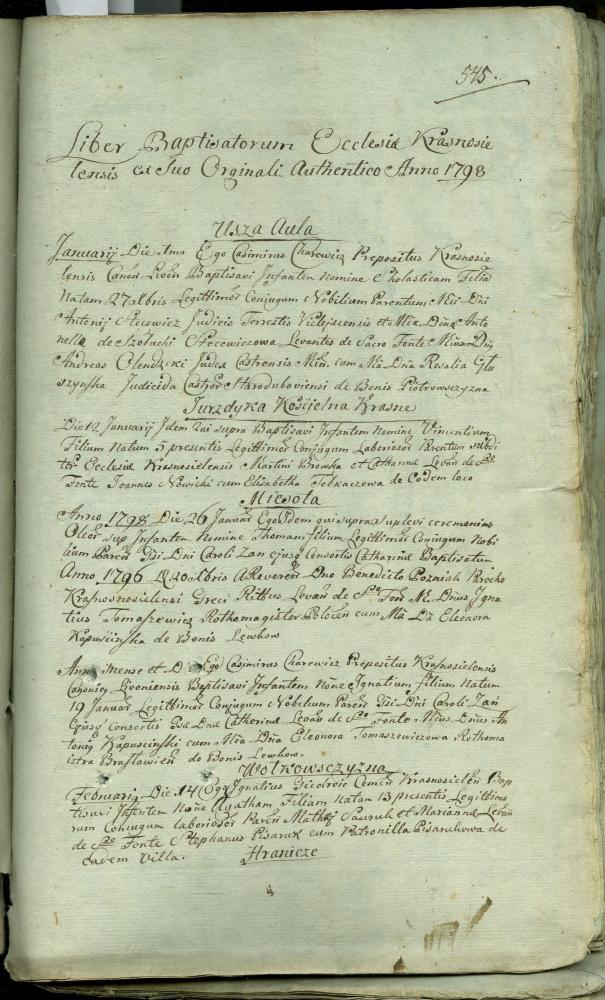 545.
Liber Baptisatorum Ecclesiæ Krasnosie
lensis ex suo Orginali Authentico Anno 1798
Usza Aula
Januarij Die 1ma Ego Casimirus Charewicz Prepositus Krasnosie
lensis Canon Livon Baptisavi Infantem Nomine Scholasticam Filia
Natam 27 Xbris Legittimor Conjugum Nobilium Parentum Mci Dni
Antonij Stecewicz Judicis Terrestis Vileyscensis et Mcæ Dnæ Anto
nellæ de Szołachi Stecewiczowa Levantes de Sacro Fonte Mcus Dnus
Andreas Olendzki Judex Castrensis Min. cum Mca Dna Rosalia Głu
szynska Judicida Castror Staroduboviensi de Bonis Piotrowszczyzna
Jurzdyka Kościelna Krasne
Die 12 Januarij Idem qui supra Baptisavi Infantem Nomine Vincentium
Filium Natum 5 presentis Legittimor Conjugum Laboriosor Parentum subdi
tor Ecclesiæ Krasnosielensis Martini et Catharinæ Levan de Sco
Fonte Joannes Nowicki cum Elisabetha Tobkaczowa de Eodem loco
Miesota
Anno 1798 Die 26 Januar Ego Idem qui supra suplevi ceremonias
Oleor sup Infantem Nomine Thomam filium Legittimor Conjugum Nobi
lium Paren Gsi Dni Caroli Zan ejusq Consortis Catharinæ Baptisatum
Anno 1796 D 20 Xbris A Reveren Dno Benedicto Pozniak Parocho
Krasnosielensi Greci Ritus Levan de Sco Fon M. Dnus Igna
tius Tomaszewicz Rothomagister Połocen cum Mca Da Eleonora
Kapuścińska de Bonis Lewkow
Anno mense et Die Ego Casimirus Charewicz Prepositus Krasnosielensis
Canonicq Livoniensis Baptisavi Infantem Nōne Ignatium filium Natum
19 Januar Legittimor Conjugum Nobilium Paren Gsi Dni Caroli Zan
Ejusq Consortis Gsæ Dnæ Catherinæ Levan de Sco Fonte Mcus Dnus An
toniq Kapuscinski cum Mca Dna Eleonora Tomaszewiczowa Rothoma
istra Brasławien de Bonis Lewkow.
Wolkowsczyzna
Februarij Die 14 Ego Ignatius Giedroic Comen Krasnosielen Bap
tisavi Infantem Nōne Agatham Filiam Natam 13 presentis Legittimo
rum Conjugum laboriosor Paren Mathej Sawruk et Mariannæ Levan
de Sco Fonte Stephanus Pisaruk cum Petronilla Pisarukowa de
Eadem Villa.
Hranicze